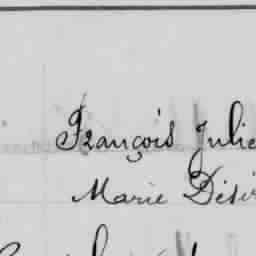 François Julie
Marie Dési